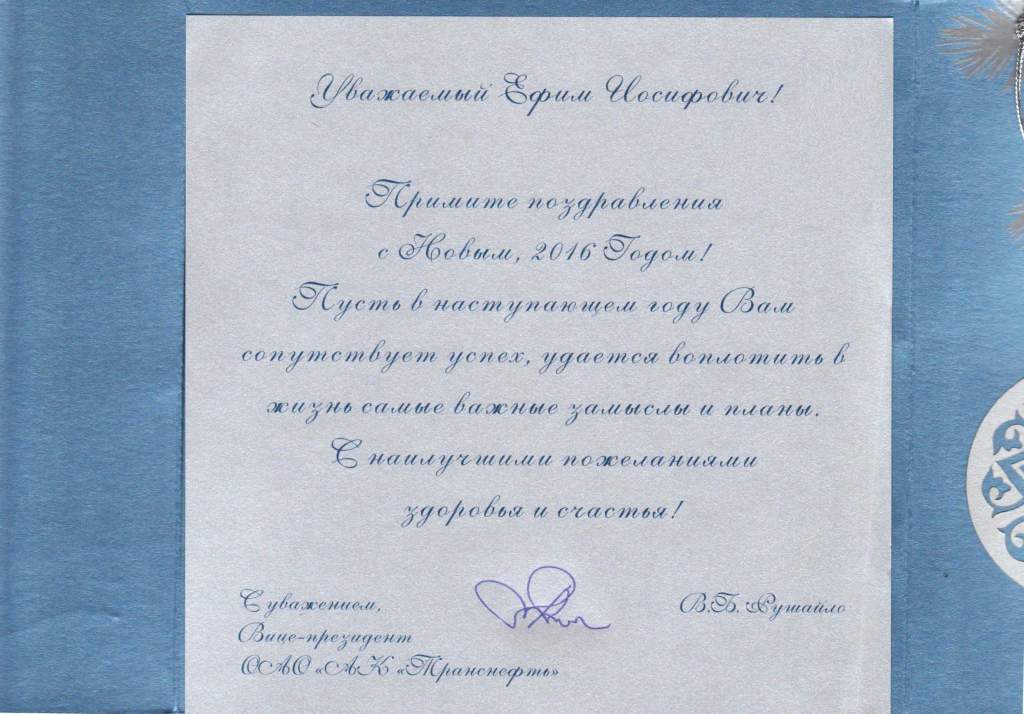 Уважаемый Ефим Иосифович!
Примите поздравления
с Новым, 2016 Годом!
Пусть в наступающем году Вам
сопутствует успех, удается воплотить в
жизнь самые важные замыслы и планы.
С наилучшими пожеланиями
здоровья и счастья!
С уважением,
В.Б. Рушайло
Вице-президент
ОАО «АК «Транснефть»